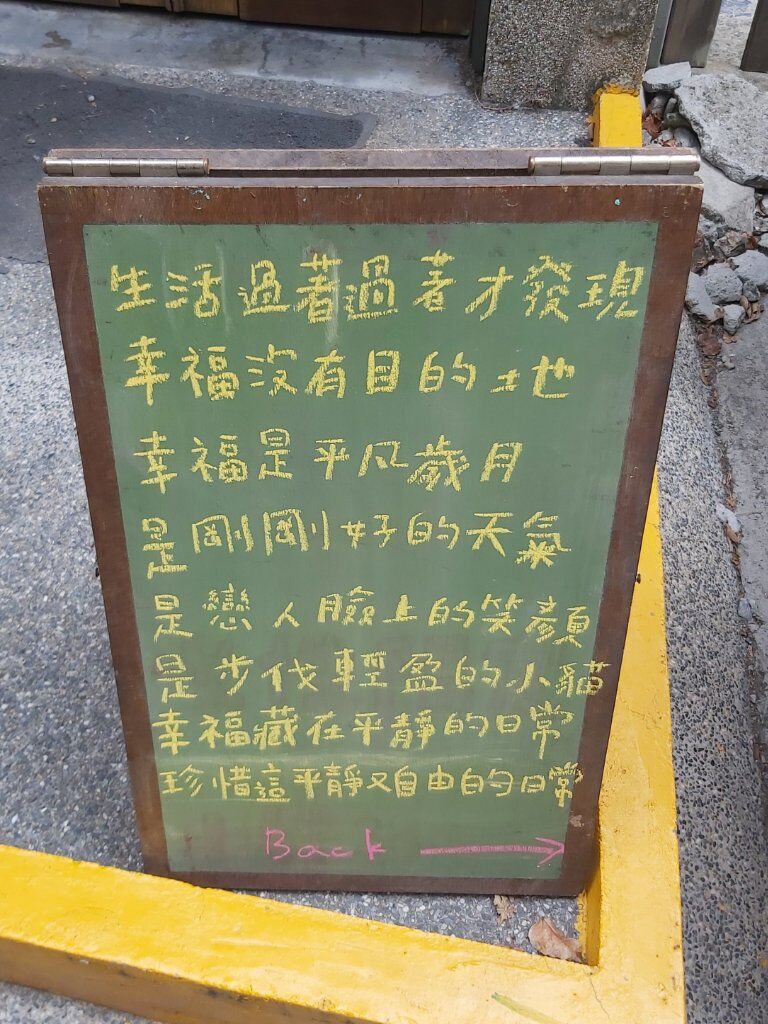 生活過著過著才發現
幸福沒有目的地
幸福是平凡歲月
是剛剛好的天氣
是戀人臉上的笑顏
是步伐輕盈的小貓
幸福藏在平靜的日常
珍惜這平靜又自由的日常
Back →